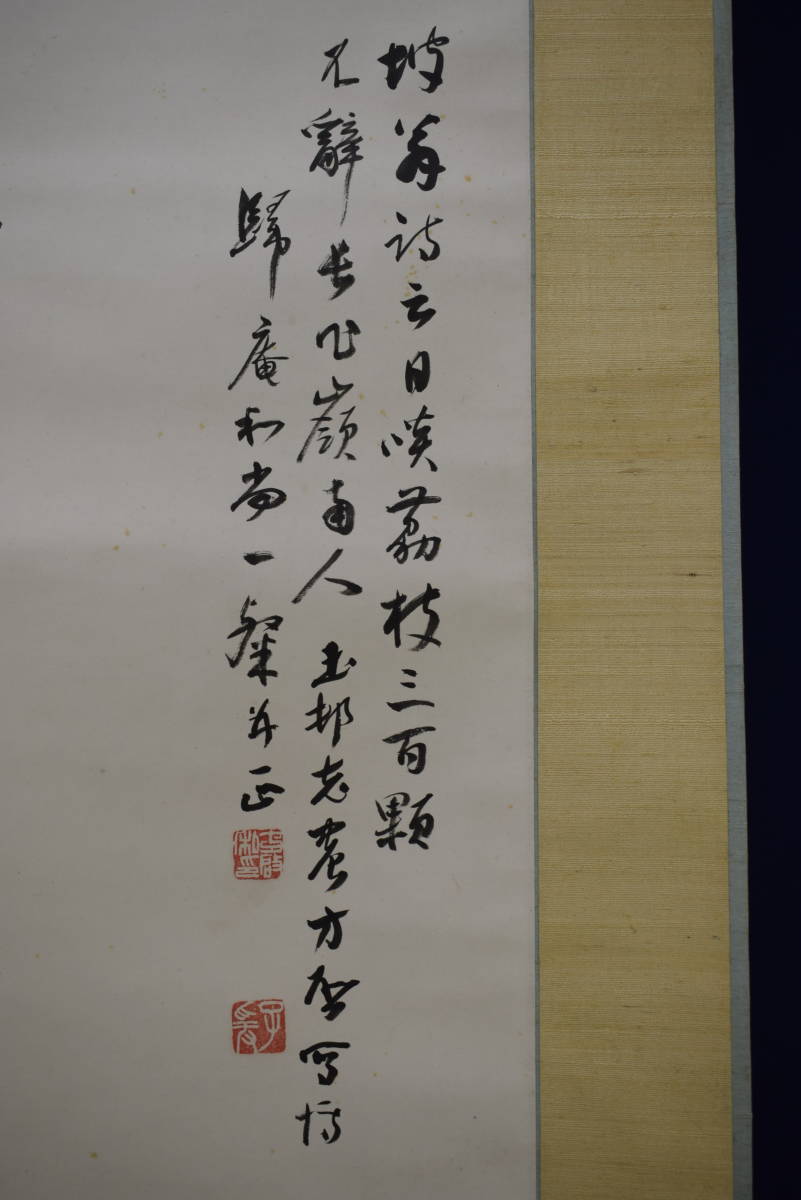 坡翁詩云日啖荔枝三百顆
不辭長作嶺南人 玉邨老農方啓寫博
歸庵和尚一粲并正